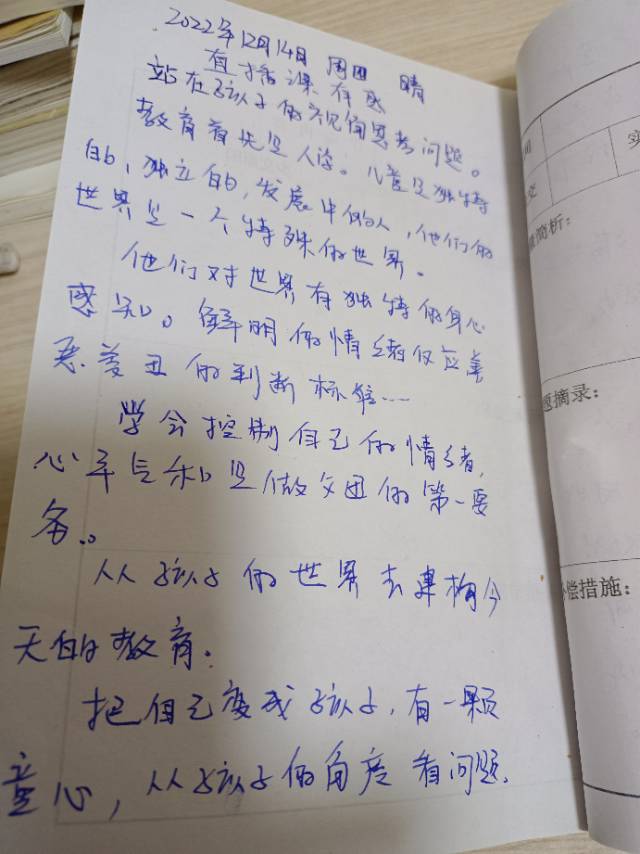 2022年12月14日 周四 晴
直播课有感
站在孩子的视角思考问题。
教育首先是人学。儿童是独特
的、独立的,发展中的人,他们的
世界是一个特殊的世界。
他们对世界有独特的身心
感知。鲜明的情绪反应善
恶美丑的判断标准……
学会控制自己的情绪,
心平气和是做父母的第一要
务。
从孩子的世界去建构今
天的教育.
把自己变成孩子,有一颗
童心,从孩子的角度看问题.
简析:
题摘录:
补偿措施: